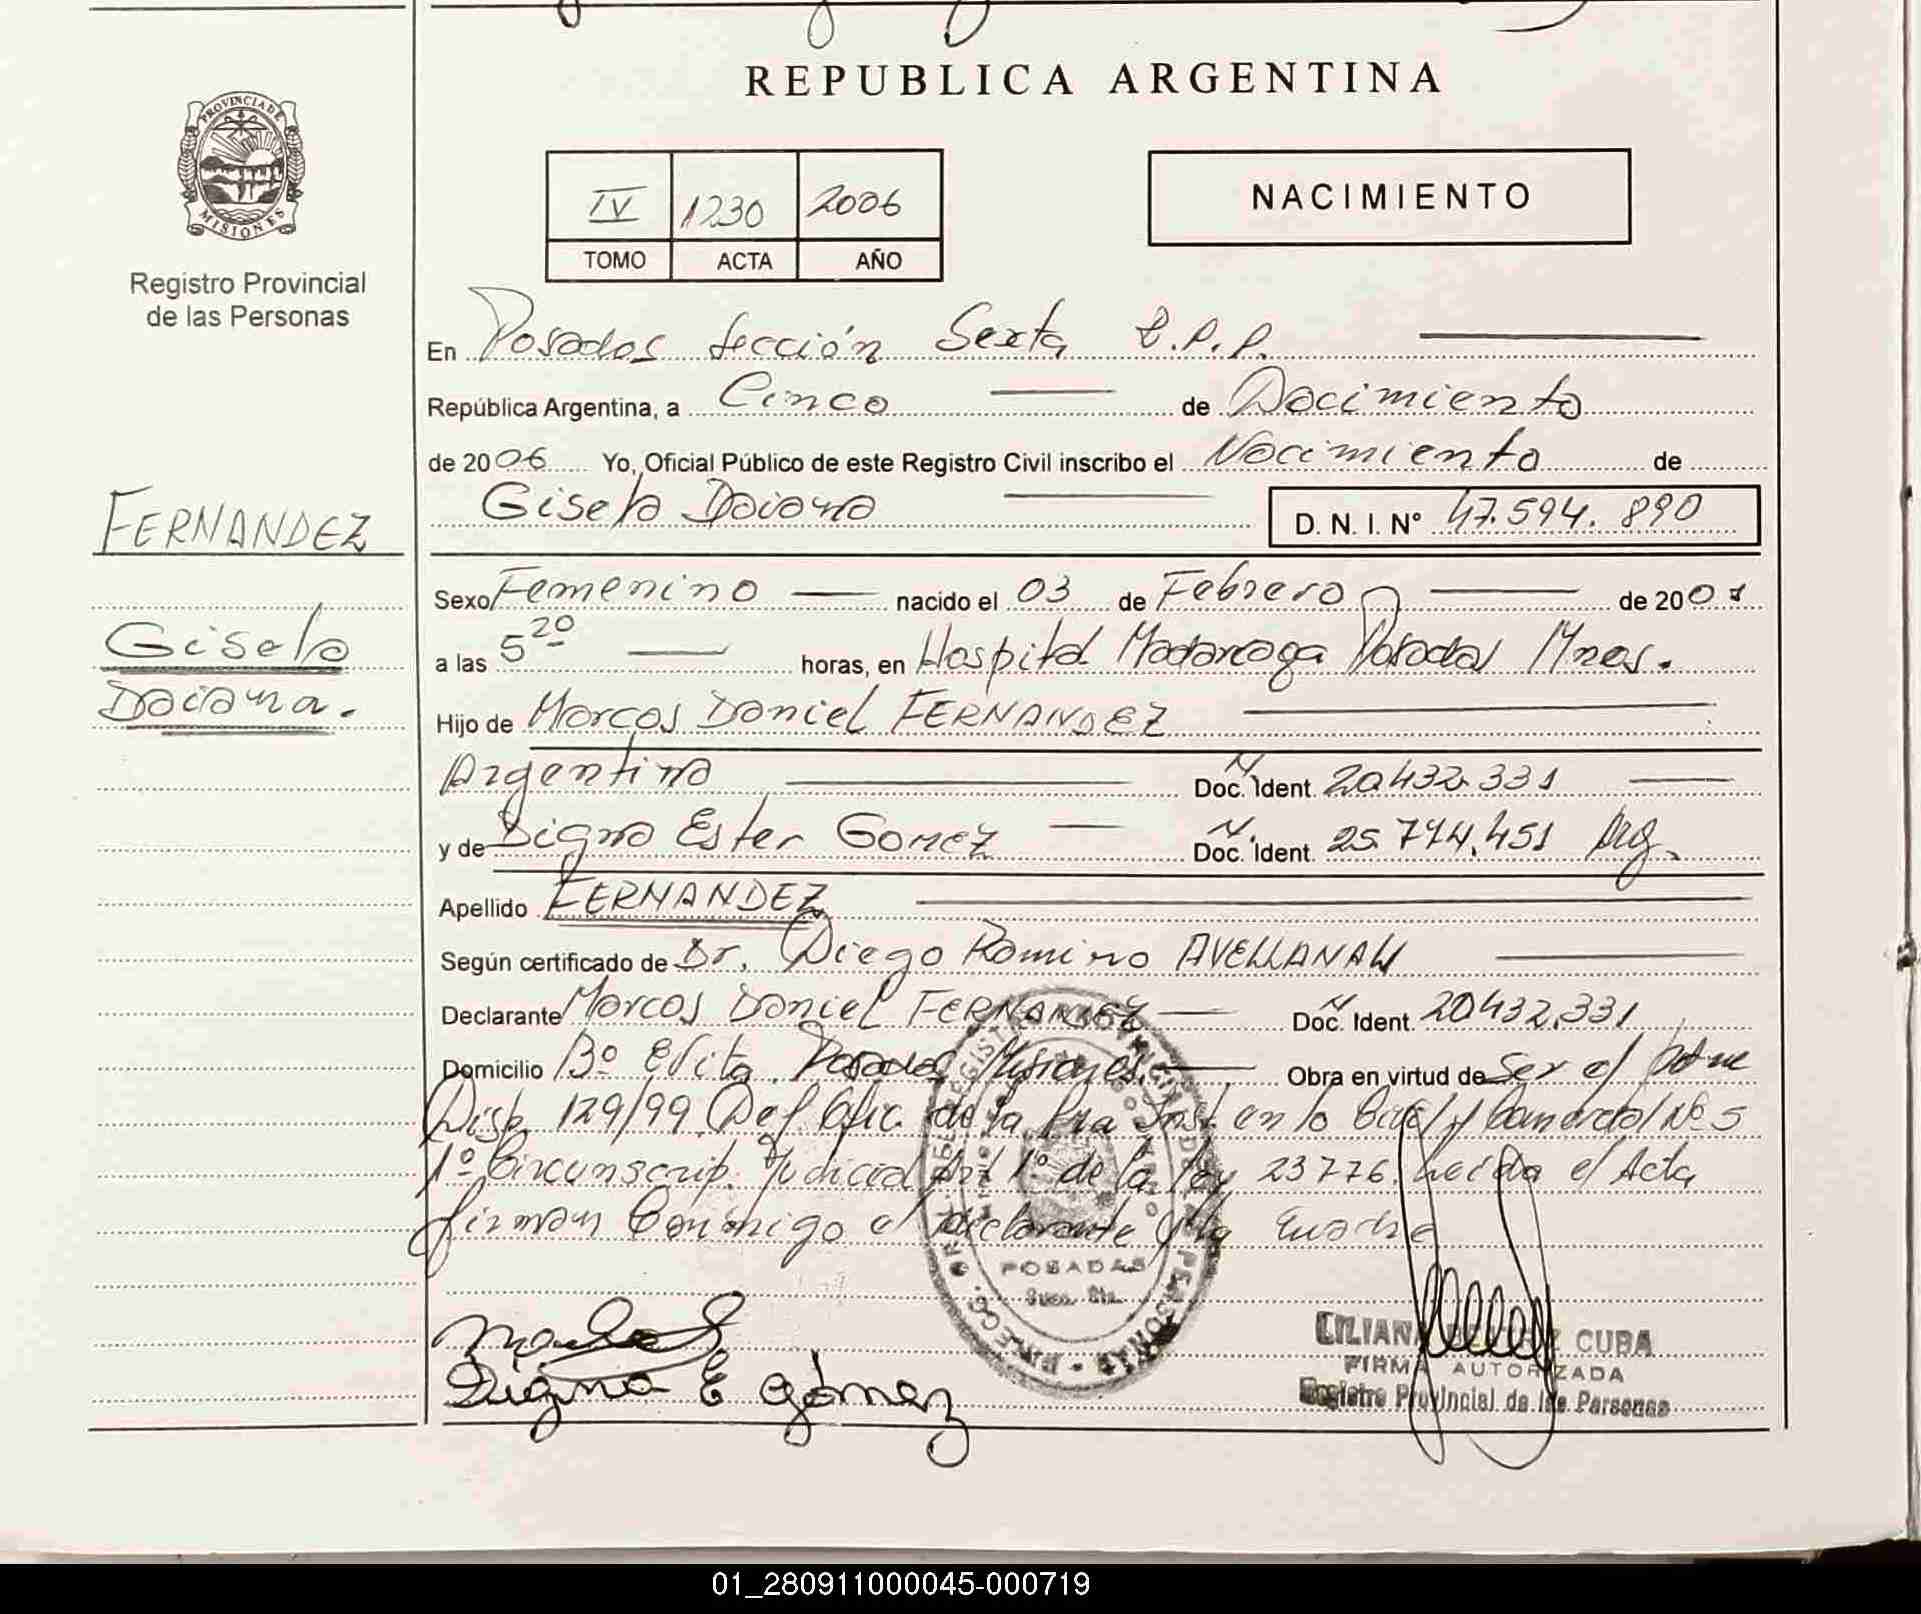 REPUBLICA ARGENTINA
PROVINCIA DE MISIONES
Registro Provincial
de las Personas
IV 1230 2006
TOMO ACTA AÑO
NACIMIENTO
En Posadas Sección Sexta R.P.P.
República Argentina, a Cinco de Nacimiento
de 2006 Yo, Oficial Público de este Registro Civil inscribo el Nacimiento de
Gisela Daiana D. N. I. Nº 47.594.890
FERNANDEZ
Gisela
Daiana.
Sexo Femenino nacido el 03 de Febrero de 200
a las 5 20 horas, en Hospital Madariaga Posadas Mnes.
Hijo de Marcos Daniel FERNANDEZ
Argentino Doc. Ident. 20.432.331
y de Digna Ester Gomez Doc. Ident. 25.774.451 Arg.
Apellido FERNANDEZ
Según certificado de Dr. Diego Romino
Declarante Marcos Daniel FERNANDEZ Doc. Ident. 20.432.331
Domicilio Bº Evita Posadas Misiones. Obra en virtud de Ser el Padre
Disp. 129/99 Def. Ofic. de la 1ra Inst. en lo Civil y Comercial Nº 5
1º Circunscrip. Judicial Art 1º de la Ley 23776. Leída el Acta
firman Conmigo el declarante y la madre
POSADAS
Digna E gómez
LILIANA BEITEZ CUBA
FIRMA AUTORIZADA
Registro Provincial de las Personas
01_280911000045-000719